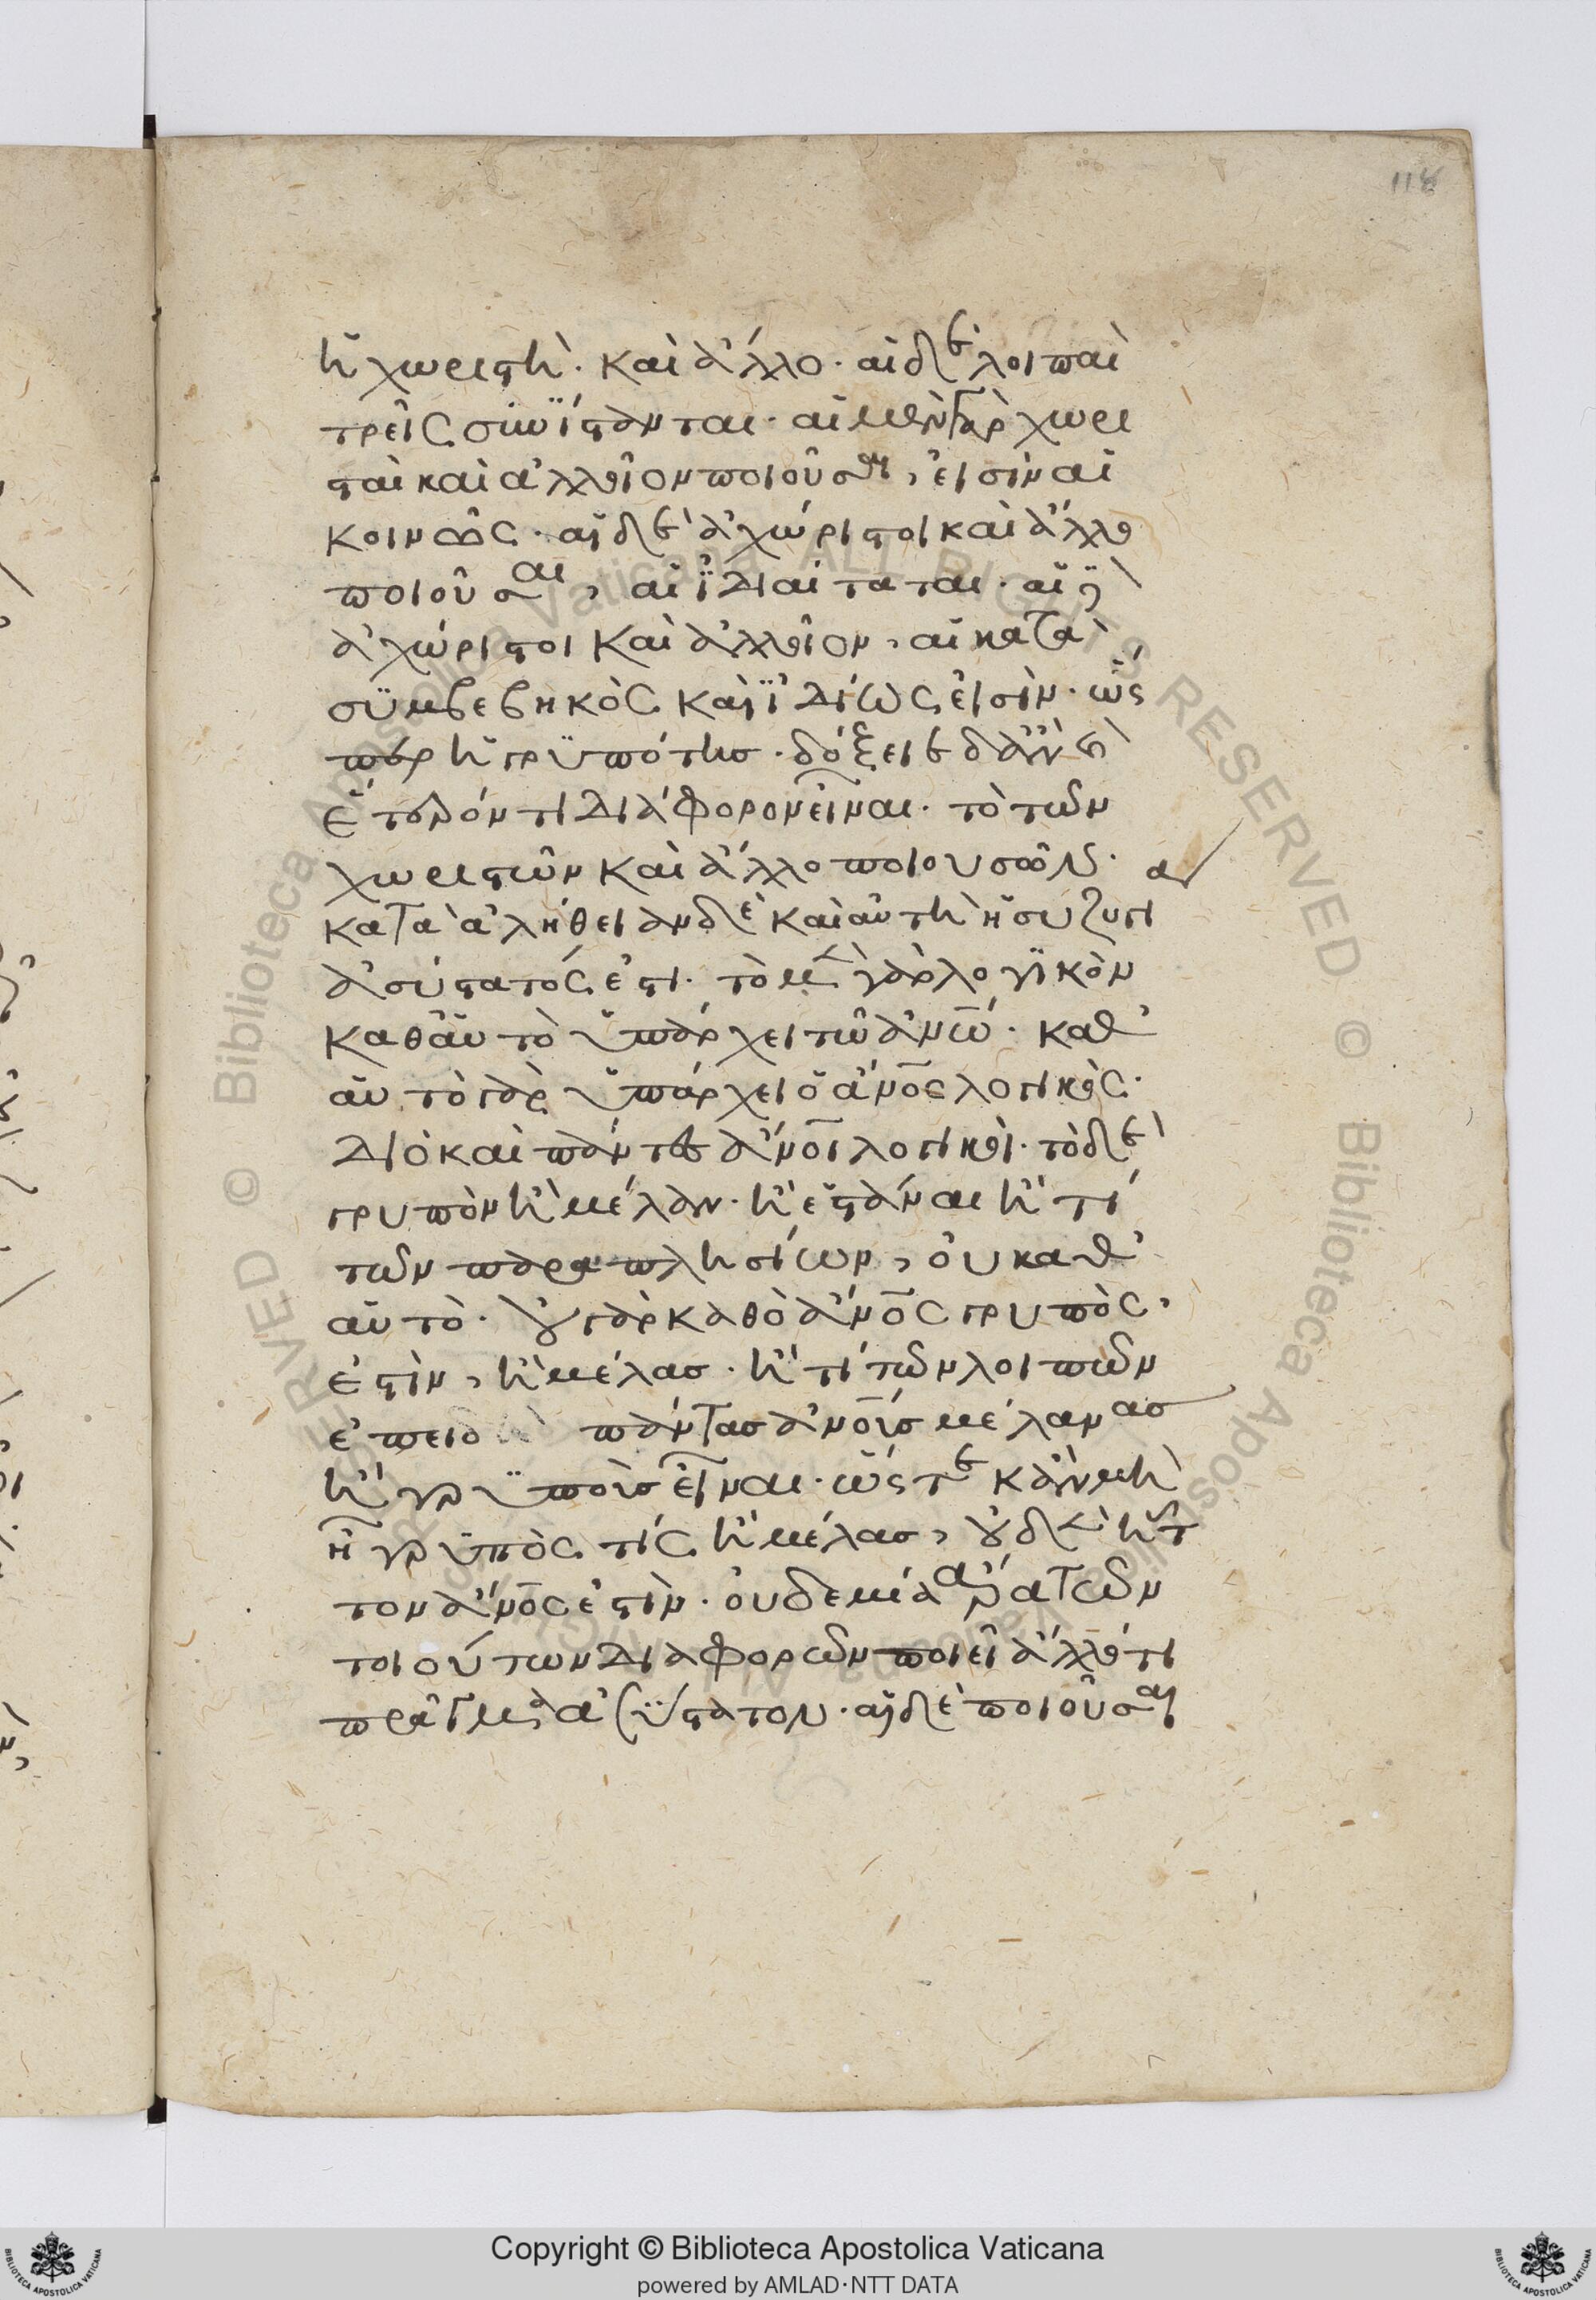 118
ἡ χωριστὴ· καὶ ἄλλο· αἱ δὲ λοιπαὶ
τρεῖς συνΐστανται· αἱ μὲν γὰρ χωρι
σταὶ καὶ ἀλλοῖον ποιοῦσαι, εἰσὶν αἱ
κοινῶς· αἱ δὲ ἀχώριστοι καὶ ἄλλο
ποιοῦσαι, αἱ ϊδιαίταται· αἱ δὲ
ἀχώριστοι καὶ ἀλλοῖον, αἱ κατὰ
συμβεβηκὸς καὶ ϊδίως εἰσὶν· ὥς
περ ἡ γρυπότησ· δόξειε δ' ἂν
ἕτερόν τι διάφορον εἶναι· τὸ τῶν
χωριστῶν καὶ ἄλλο ποιουσῶν·
κατὰ ἀλήθειαν δὲ καὶ αὐτὴ ἡ συζυγι
ἀσύστατός ἐστι· τὸ μὲν γὰρ λογϊκὸν
καθ' αὑτὸ ὑπάρχει τῶ ἀνω· καθ'
αὑτὸ γὰρ ὑπάρχει ὁ ἄνος λογικὸς·
διὸ καὶ πάντες ἄνοι λογικοὶ· τὸ δὲ
γρυπὸν ἢ μέλαν· ἢ ἑστάναι ἢ τί
τῶν παραπλησίων, οὐ καθ'
αὑτὸ· οὐ γὰρ καθὸ ἄνος γρυπὸς,
ἐστὶν, ἢ μέλασ· ἢ τί τῶν λοιπῶν
ἐπειδ πάντασ ἀνοισ μέλανασ
ἢ γρυποὺσ εἶναι· ὥστε κἂν μὴ
ῆ γρυπὸς τίς ἢ μέλασ, οὐδὲν ἧτ
τον ἄνος ἐστὶν· οὐδεμία ἄρα τῶν
τοιούτων διαφορῶν ποιεῖ ἄλλό τι
πρᾶγμα ἀσύστατον· αἱ δὲ ποιοῦσαι
Copyright © Biblioteca Apostolica Vaticana
powered by AMLAD·NTT DATA